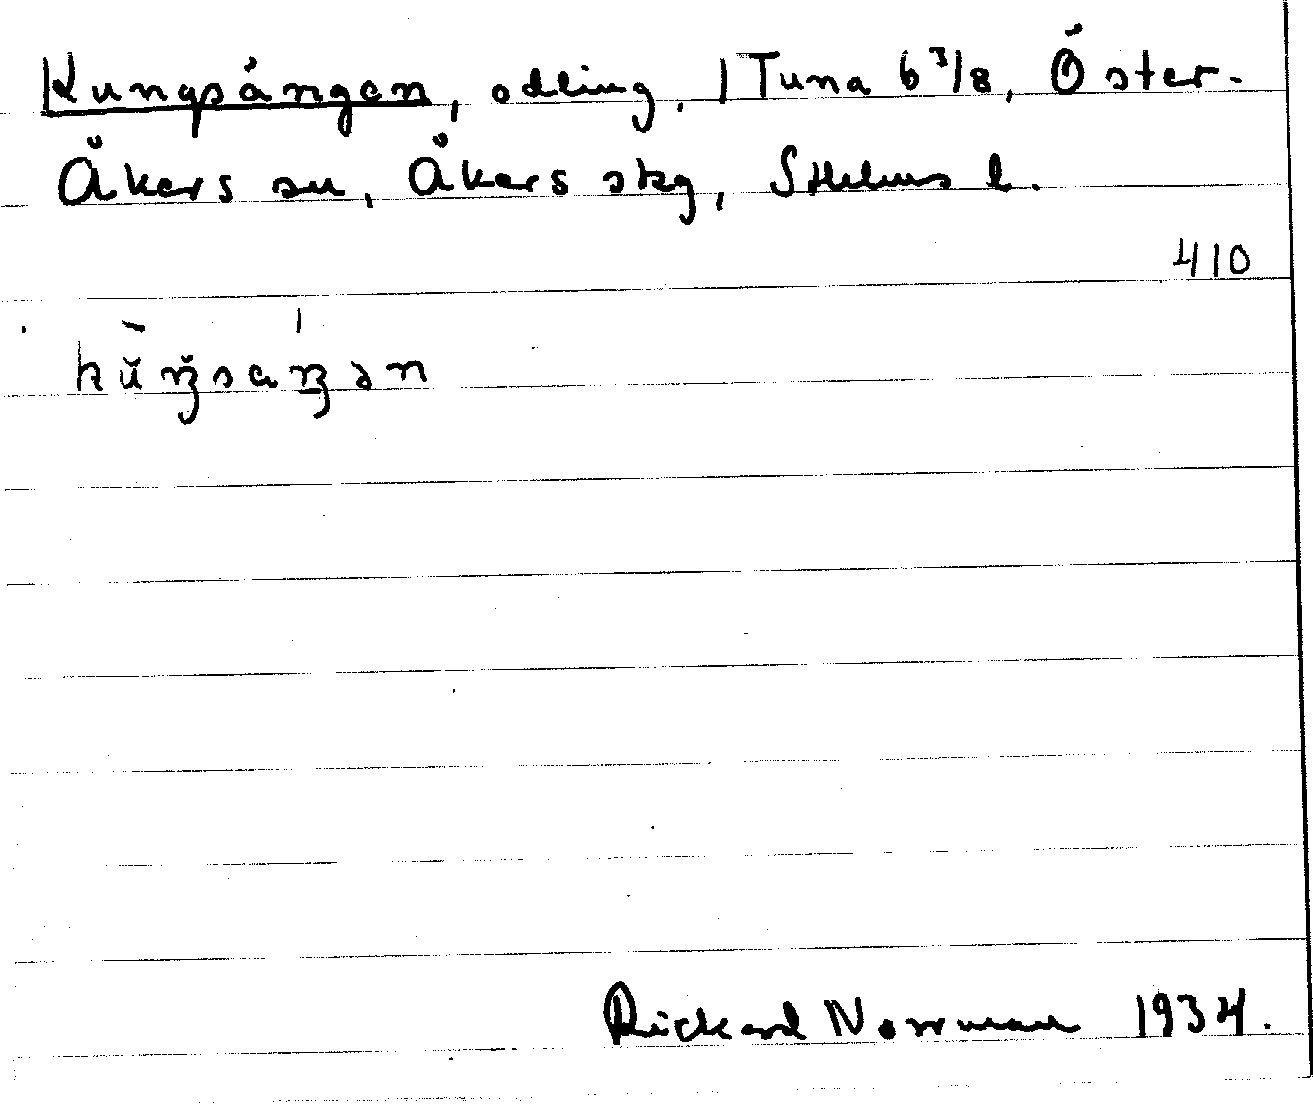 Kungsängen, odling, 1 Tuna 6 3/8, Öster-
Åkers sn, Åkers skg, Sthlms l.
410
kŭŋsaŋən
Rickard Norman 1934.